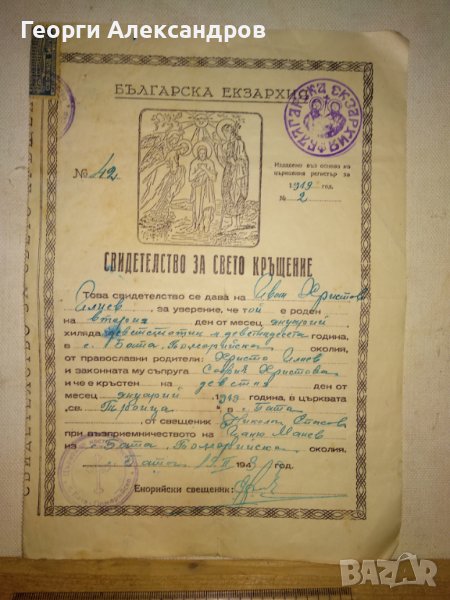 Георги Александров
БЪЛГАРСКА ЕКЗАРХИЯ
БЪЛГАРСКА ЕКЗАРХИЯ
№ 42
Издадено въз основа на
църковния регистър за
1919
№ 2
СВИДЕТЕЛСТВО ЗА СВЕТО КРЪЩЕНИЕ
Това свидетелство се дава на Иван Христов
Илиев за уверение, че той е роден
на втория ден от месец януарий
хиляда деветстотин и деветнадесета година,
в с. Бата, Поморийска околия,
от православни родители: Христо Илиев
и законната му съпруга София Христова
и че е кръстен на девети ден от
месец януарий 1919 година, в църквата
„Св. Троица“ в с. Бата
от свещеник Никола Стасов
при възприемничеството на Цаню Манев
из с. Бата, Поморийска околия,
с. Бата 1943 год.
Енорийски свещеник:
BAZAR